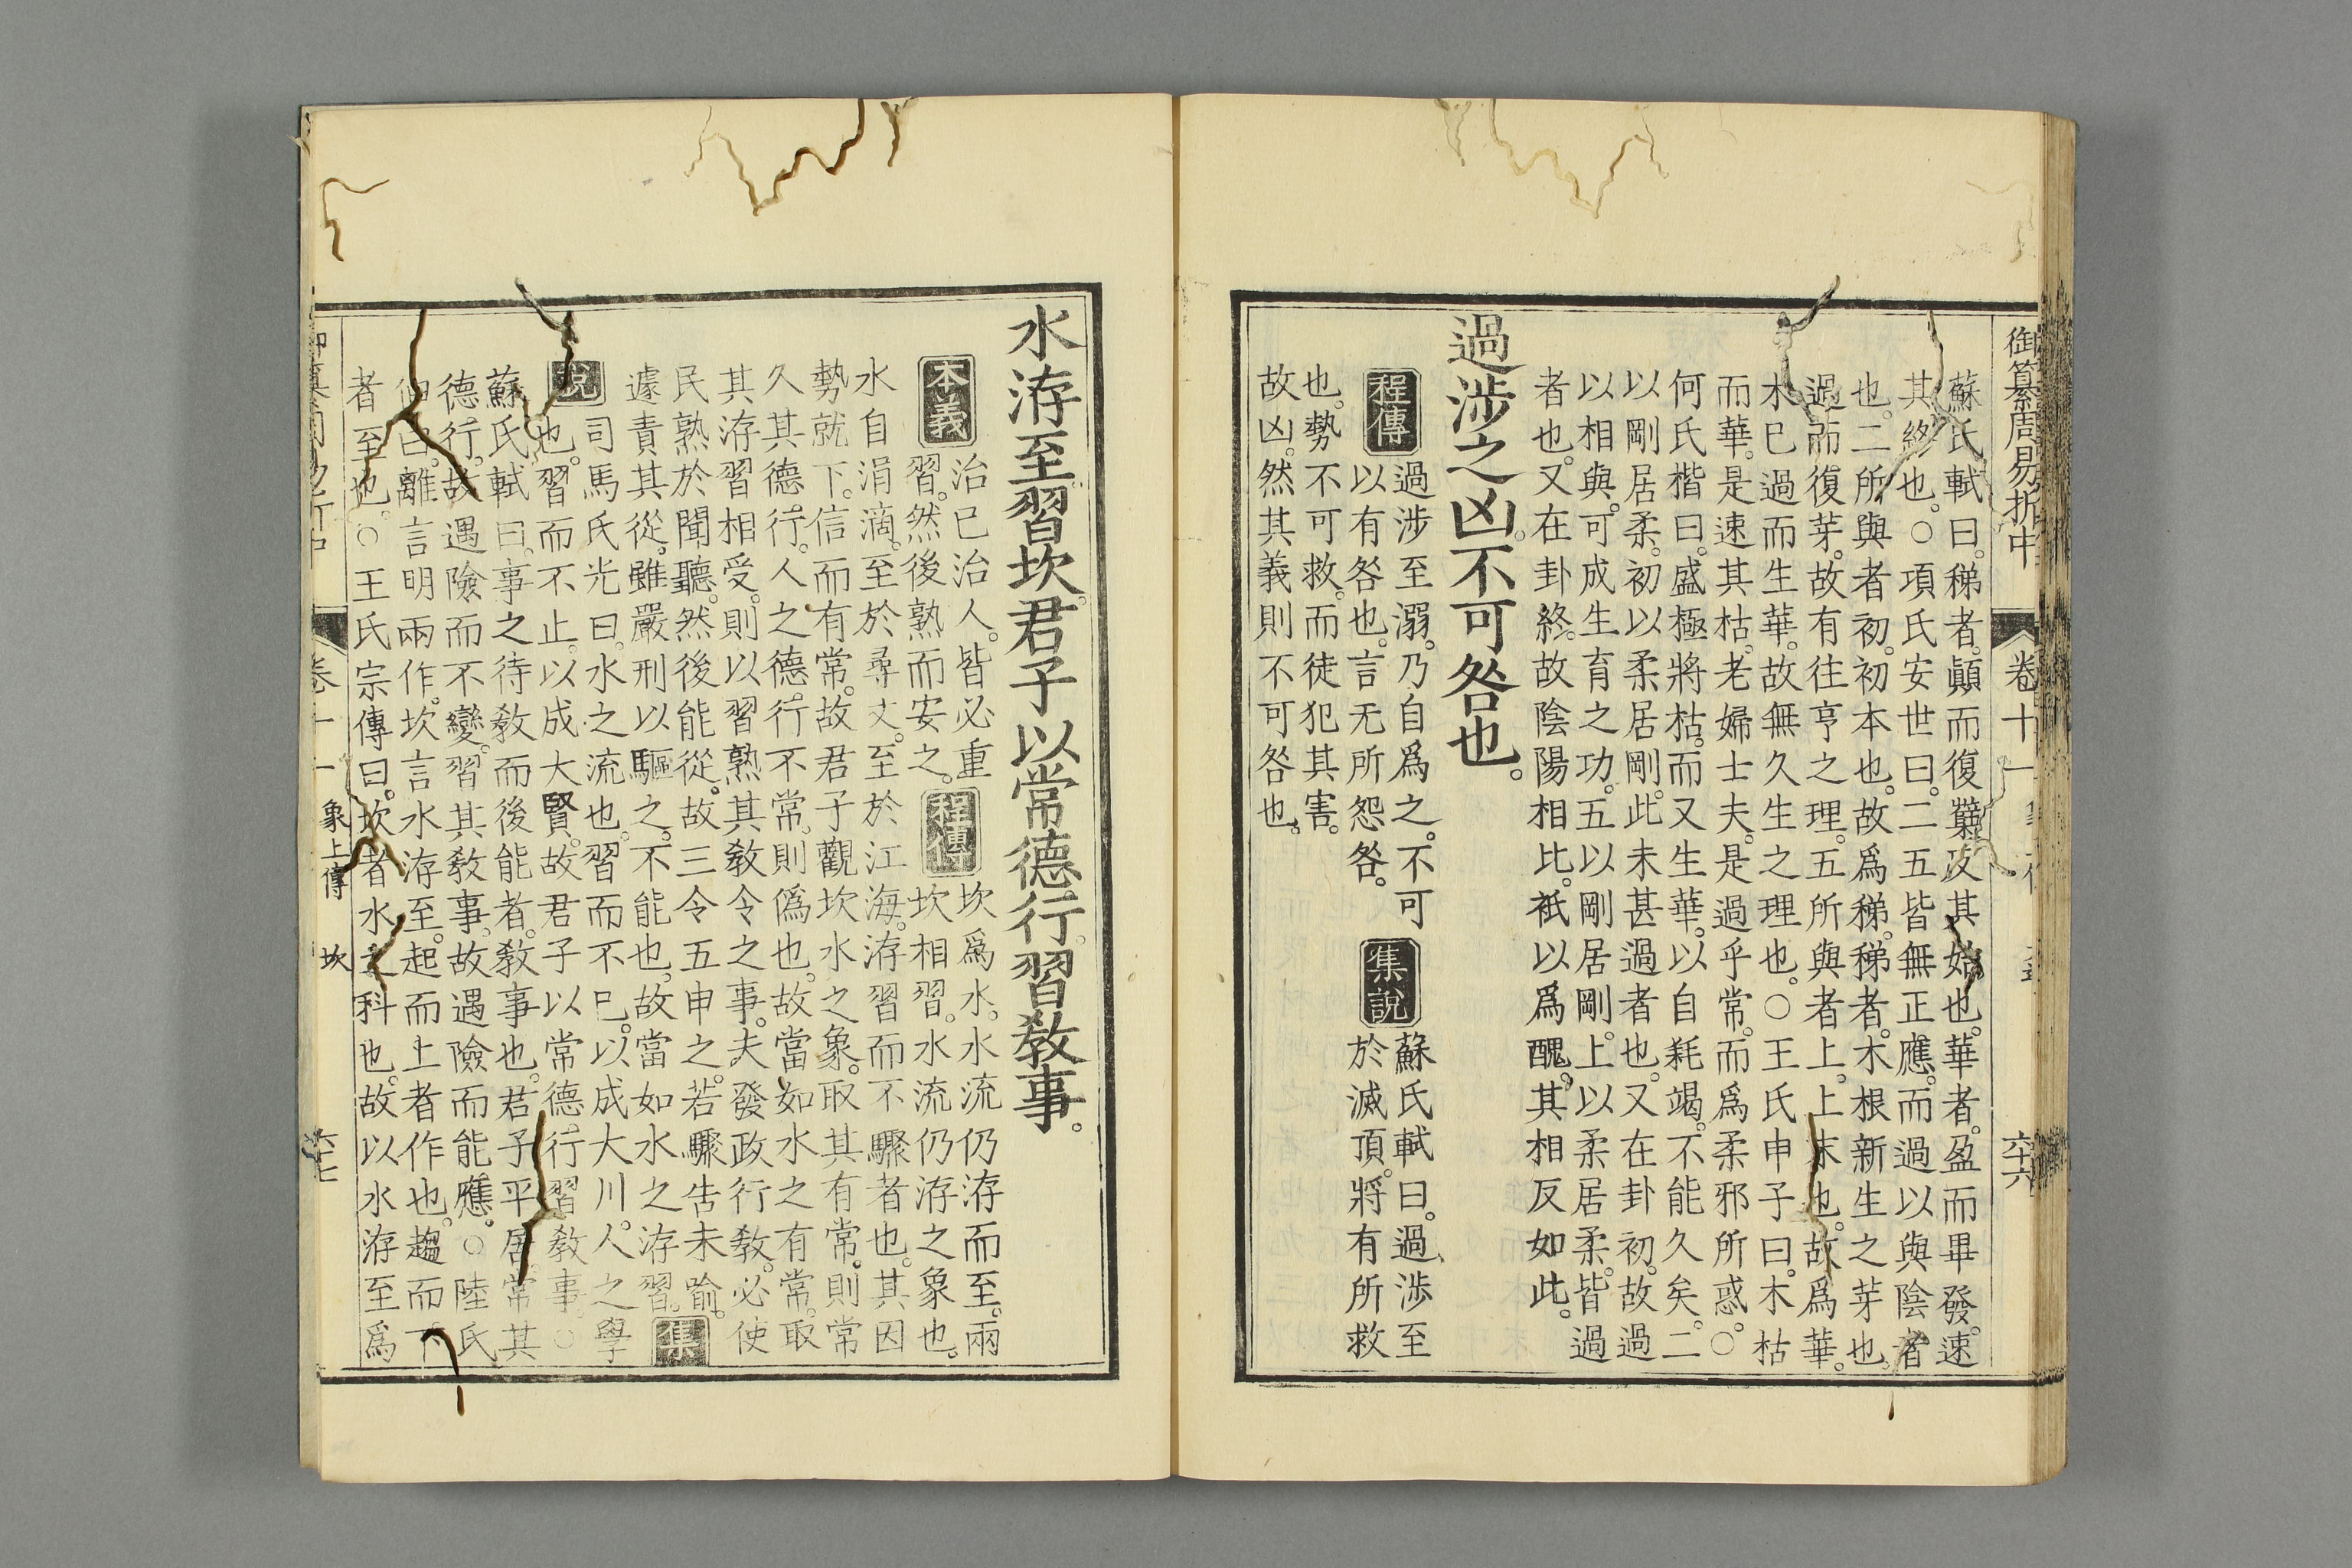 御纂周易折中
卷十一
六十六
蘇氏軾曰。稊者。顚而復蘖。反其始也。華者。盈而畢發。速
其終也。○項氏安世曰。二五皆無正應。而過以與陰者
也。二所與者初。初本也。故爲稊。稊者。木根新生之芽也。
過而復芽。故有往亨之理。五所與者上。上末也。故爲華。
木已過而生華。故無久生之理也。○王氏申子曰。木枯
而華。是速其枯。老婦士夫。是過乎常。而爲柔邪所惑。○
何氏楷曰。盛極將枯。而又生華。以自耗竭。不能久矣。二
以剛居柔。初以柔居剛。此未甚過者也。又在卦初。故過
以相與。可成生育之功。五以剛居剛。上以柔居柔。皆過
者也。又在卦終。故陰陽相比。祇以爲醜。其相反如此。
過涉之凶。不可咎也。
程傳
過涉至溺。乃自爲之。不可
以有咎也。言无所怨咎。
集說
蘇氏軾曰。過涉至
於滅頂。將有所救
也。勢不可救。而徒犯其害。
故凶。然其義則不可咎也。
水洊至習坎。君子以常德行。習敎事。
本義
治已治人。皆必重
習。然後熟而安之。
程傳
坎爲水。水流仍洊而至。兩
坎相習。水流仍洊之象也。
水自涓滴。至於尋丈。至於江海。洊習而不驟者也。其因
勢就下。信而有常。故君子觀坎水之象。取其有常。則常
久其德行。人之德行不常。則僞也。故當如水之有常。取
其洊習相受。則以習熟其敎令之事。夫發政行敎。必使
民熟於聞聽。然後能從。故三令五申之。若驟告未喻。
遽責其從。雖嚴刑以驅之。不能也。故當如水之洊習。
集
說
司馬氏光曰。水之流也。習而不已。以成大川。人之學
也。習而不止。以成大賢。故君子以常德行。習敎事。○
蘇氏軾曰。事之待敎而後能者。敎事也。君子平居。常其
德行。故遇險而不變。習其敎事。故遇險而能應。○陸氏
佃曰。離言明兩作。坎言水洊至。起而上者作也。趨而下
者至也。○王氏宗傳曰。坎者水之科也。故以水洊至爲
卷十一
象上傳
坎
六十七